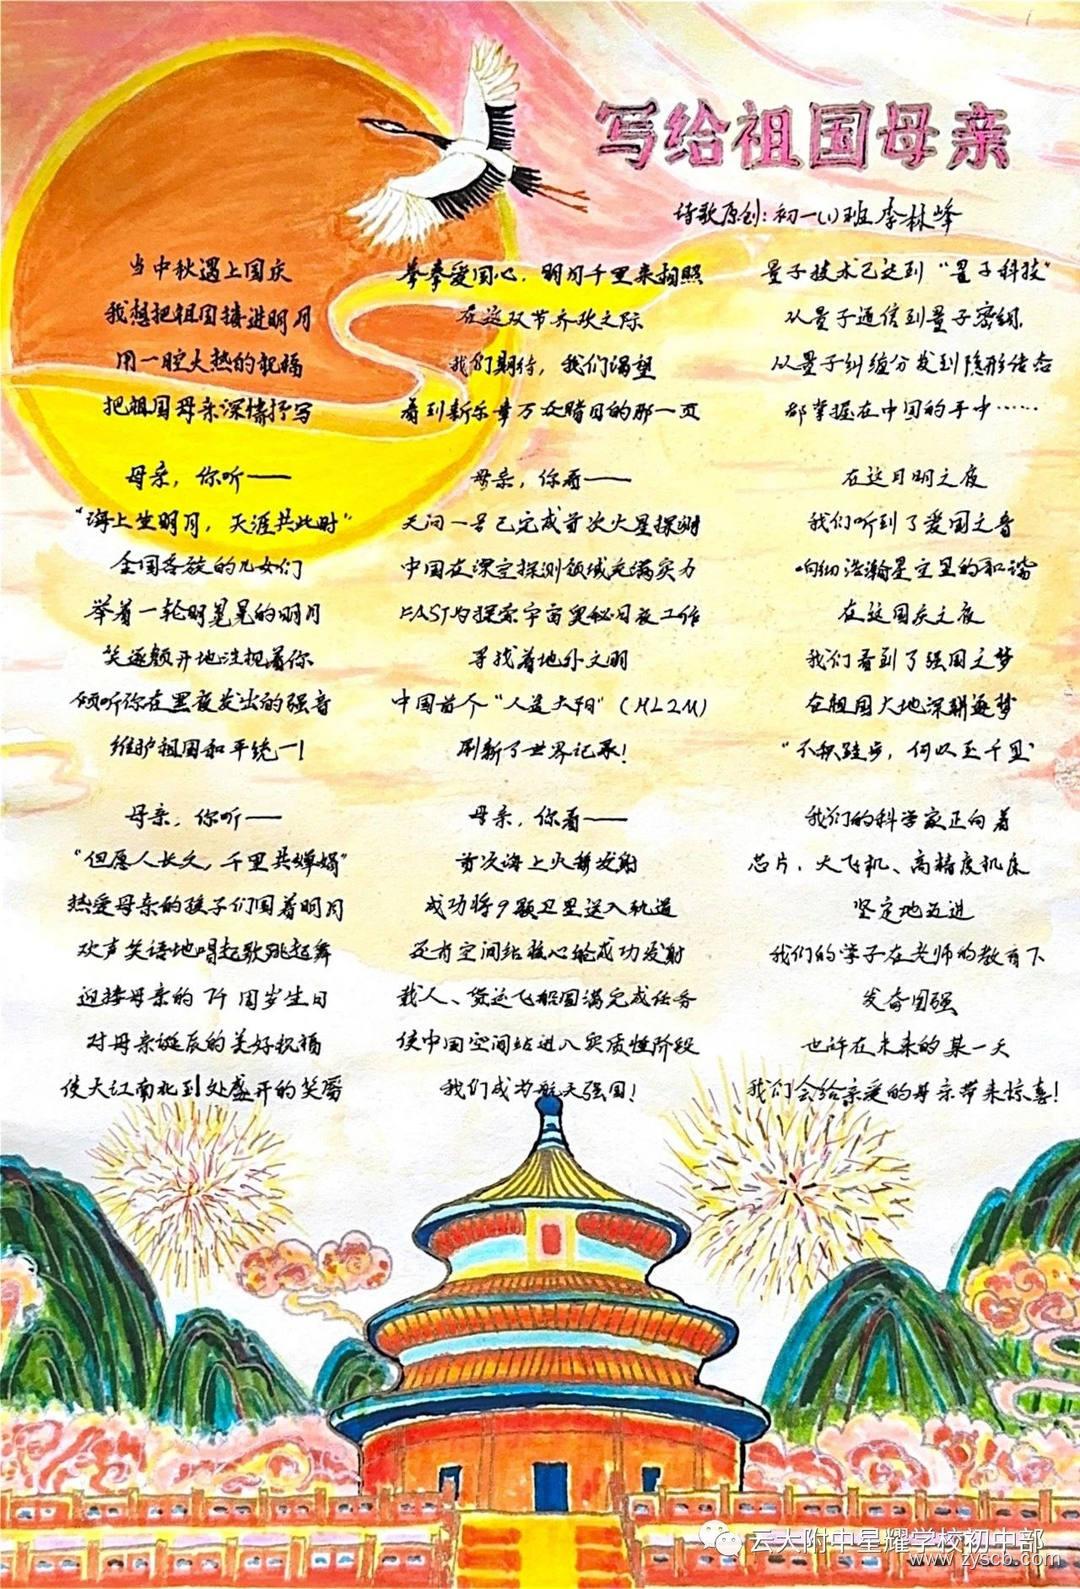 写给祖国母亲
诗歌原创：初一(1)班 李林峰
当中秋遇上国庆
我想把祖国接进明月
用一腔火热的祝福
把祖国母亲深情抒写
母亲，你听——
“海上生明月，天涯共此时”
全国各族的儿女们
举着一轮明晃晃的明月
笑逐颜开地注视着你
倾听你在黑夜发出的强音
维护祖国和平统一！
母亲，你听——
“但愿人长久，千里共婵娟”
热爱母亲的孩子们围着明月
欢声笑语地唱起歌跳起舞
迎接母亲的74周岁生日
对母亲诞辰的美好祝福
使大江南北到处盛开的笑靥
拳拳爱国心，明月千里来相照
在这双节齐欢之际
我们期待，我们渴望
看到新乐章万众瞩目的那一页
母亲，你看——
天问一号已完成首次火星探测
中国在深空探测领域充满实力
FAST为探索宇宙奥秘日夜工作
寻找着地外文明
中国首个“人造太阳”(HL2M)
刷新了世界记录！
母亲，你看——
首次海上火箭发射
成功将9颗卫星送入轨道
还有空间站核心舱成功发射
载人、货运飞船圆满完成任务
使中国空间站进入实质性阶段
我们成为航天强国！
量子技术已达到“量子科技”
从量子通信到量子密钥，
从量子纠缠分发到隐形传态
都掌握在中国的手中……
在这月明之夜
我们听到了爱国之音
响彻浩瀚星空里的和谐
在这国庆之夜
我们看到了强国之梦
在祖国大地深耕逐梦
“不积跬步，何以至千里”
我们的科学家正向着
芯片、大飞机、高精度机床
坚定地迈进
我们的学子在老师的教育下
发奋图强
也许在未来的某一天
我们会给亲爱的母亲带来惊喜！
云大附中星耀学校初中部
www.zyscb.com